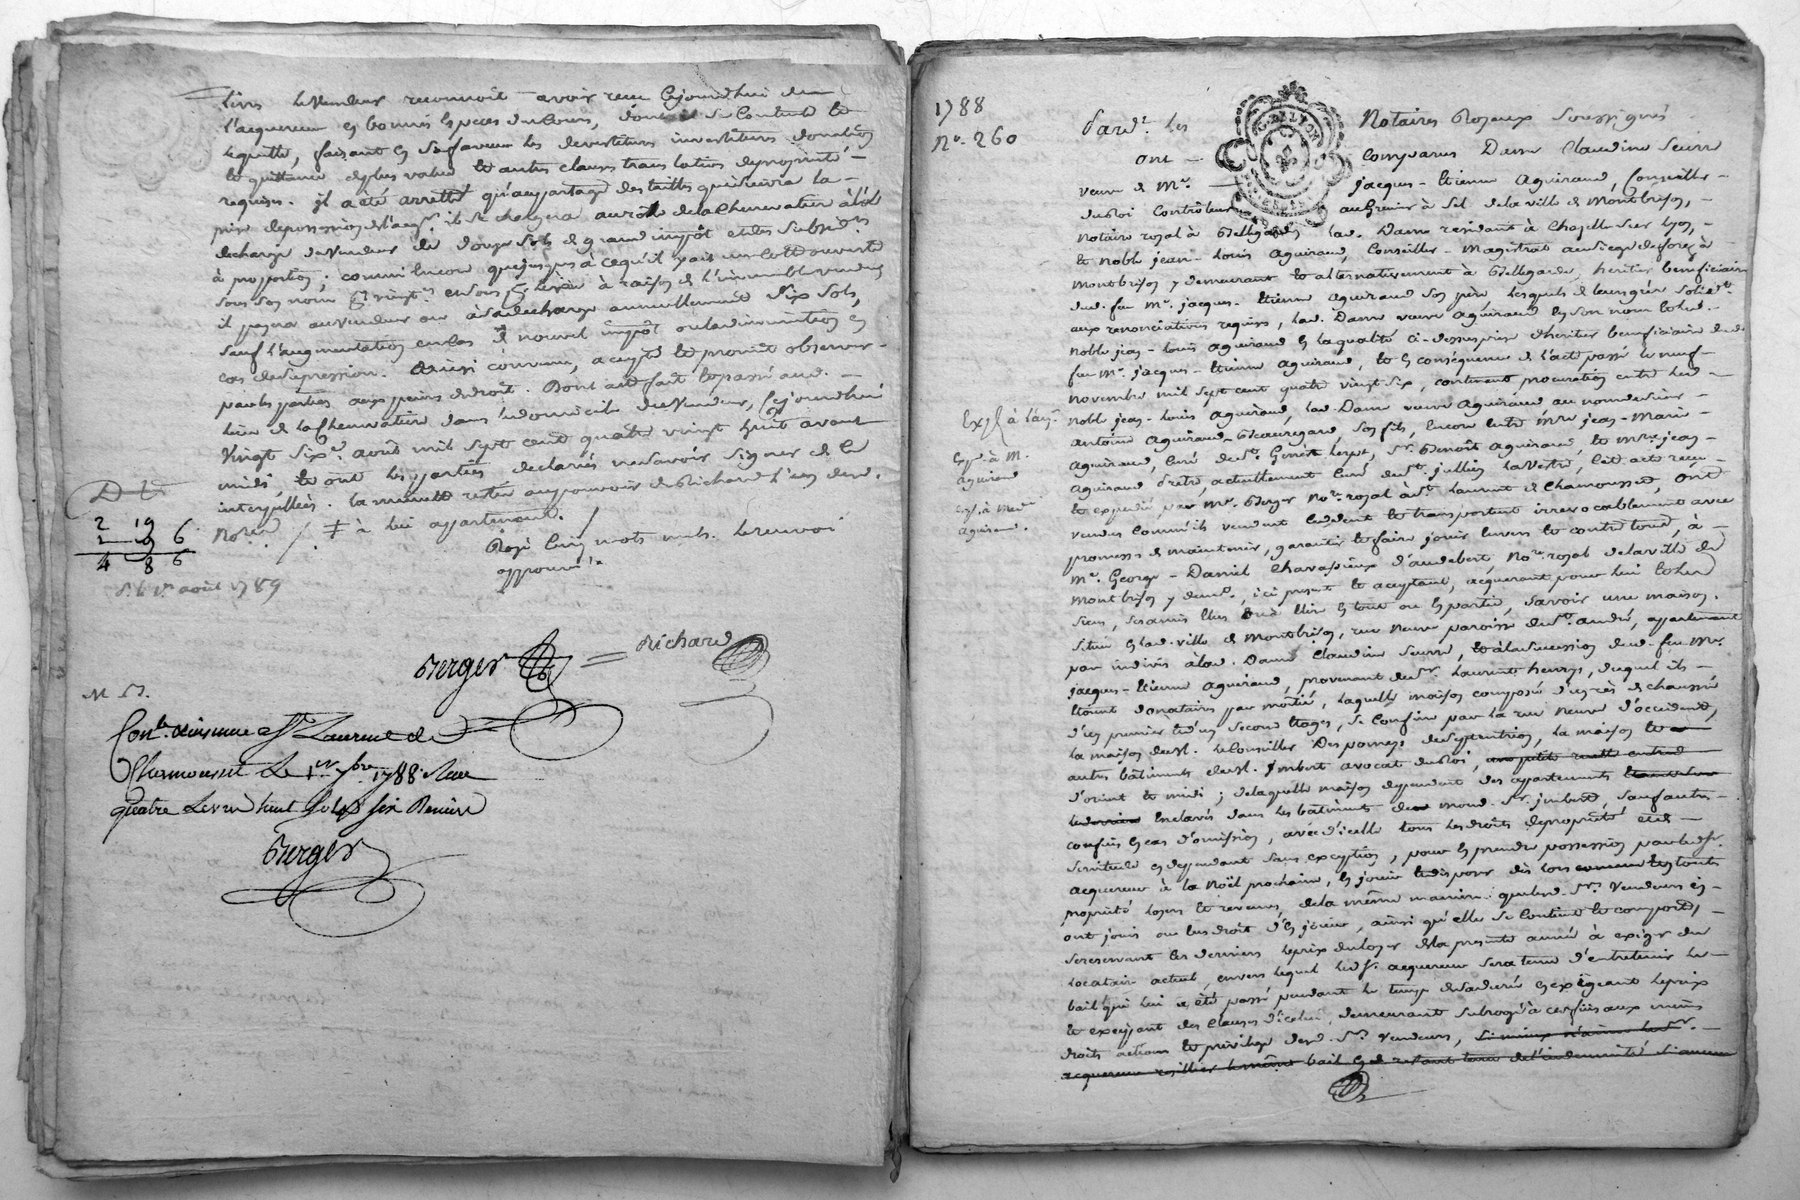 livres le Vendeur reconnoit avoir recu cejourdhui de
l'acquereur en bonnes especes du Cours, dont il se Contente le
faisant en sa faveur les devestiture investiture
le quittance de plus value et autres clauses translatives de propriété -
requises. il a été arretté qu'au partage des tailles qui suivra la -
prise de possession de l'acq.r il se chargera au rôle de la Chenevatier à la
decharge du Vendeur de douze sols de grand impôt et des subsides
à proportion; comme encore que jusques à ce qu'il y ait un Cotte ouverte
sous son nom à raison de l'immeuble vendu
il payera au Vendeur ou à sa decharge annuellement six sols,
sauf l'augmentation en cas de nouvel impôt ou la diminution en
cas de supression. Ainsi convenu, accepté et promit observer -
par les parties aux peines de droit. Dont acte fait et passé aud. -
lieu de la Chenevatier dans l'e domicile du Vendeur, Cejourdhui
vingt six.e août mil sept cent quatre vingt huit avant
midi, et ont les parties declarées ne savoir signer de ce
interpellées. la minute restée au pouvoir de Richard l'un des.
No.res ‡ à lui appartenant.
Rayé cinq mots nuls. le renvoi
approuvé
2 19 6
4 8 6
août 1789
Berger = Richard
Con.lé St Laurent de
Chamousset Le 1er 7bre 1788 Reçu
quatre Livres huit sols six Deniers
Berger
1788
N.o 260
Pard.t les Notaires Royaux soussignés
ont - Comparus Dame Claudine Seurre
veuve de M.e Jacques - Etienne Aguiraud, Conseiller -
du Roi Contrôleur au Grenier à sel de la ville de Montbrison, -
Notaire royal à Bellegarde lad. Dame residant à Chazelle sur Lyon, -
et noble jean - Louis Aguiraud, Conseiller - Magistrat au siege de forez à
Montbrison y demeurant et alternativement à Bellegarde, heritier beneficiaire
dud. feu M.e jacques - Etienne Aguiraud son père lesquels de leurs grés solid.t
aux renonciations requises, lad. Dame veuve Aguiraud en son nom et led.
Noble jean - Louis Aguiraud en la qualité ci-dessus prise d'heritier beneficiaire dud.
feu M.e jacques - Etienne Aguiraud, et en conséquence de l'acte passé le neuf -
novembre mil sept cent quatre vingt six, contenant procuration entre led -
Exp. à l'acq.
noble jean - Louis Aguiraud, lad. Dame veuve Aguiraud au nom de sieur -
antoine Aguiraud-Beauregard, son fils, encore entre M.re jean - Marie -
Exp. à M. Aguiraud
Aguiraud, Curé de St. Genest lerpt, Sr. Benoit Aguiraud, et M.re jean -
Aguiraud Prêtre, actuellement Curé de St. jullien la Vêtre, led. acte reçu -
Exp. à Mad.e Aguiraud.
et expedié par M.e Berger No.re royal à St. Laurent de Chamousset, ont
vendu comme ils vendent cedent et transportent irrevocablement avec
promesse de maintenir, garantir et faire jouir envers et contre tous, à -
M.e George - Daniel Chavassieux d'audebert, No.re royal de la ville de
Montbrison y dem.t, ici present et acceptant, acquerant pour lui et les
siens, ses amis élus ou à élire en tout ou en partie, savoir une maison.
située en lad. ville de Montbrison, rue Neuve paroisse de St. andré, appartenant
par indivis à lad. Dame Claudine Seurre, et à la succession dud. feu M.e
jacques - Etienne Aguiraud, provenant de Sr. Laurent henrys, duquel ils -
étoient donataires par moitié, laquelle maison composée d'un rès de chaussée
d'un premier et d'un second etages, se confine par la rue Neuve d'occident,
la maison de M. le Conseiller Despomeys de septentrion, la maison et
autres bâtiments de M. Imbert avocat du Roi,
d'orient et midi; de laquelle maison dependent des appartements
Enclavés dans les bâtiments de mond. Sr. jmbert, sauf autres -
confins en cas d'omission, avec d'icelle tous les droits de propriété et de -
servitude en dependant sans exception, pour en prendre possession par led. Sr.
acquereur à la Noël prochaine, en jouir et disposer dès lors en toute
propriété loyers et revenus, de la même maniere que lesd. Srs. Vendeurs en -
ont joui ou eu droit d'en jouir, ainsi qu'elle se Contient et comporte, -
se reservant les derniers le prix du loyer de la presente année à exiger du
locataire actuel, envers lequel led. Sr. acquereur sera tenu d'entretenir le -
bail qui lui a été passé pendant le temps de sa durée en exigeant le prix
et excipant des clauses d'icelui, demeurant subrogé à ces fins aux mêmes
droits actions et privileges desd. Srs Vendeurs, si mieux n'aime led. Sr. -
acquereur resilier le même bail